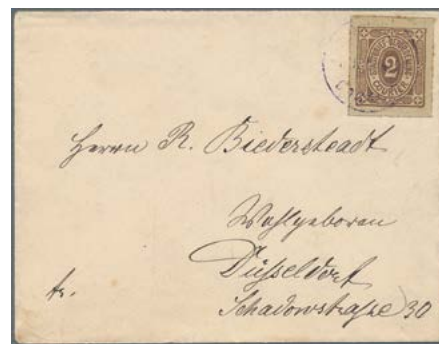 2
COURIER
Herrn R. Biedersteadt
Wohlgeboren
Düsseldorf
fr.
Schadowstraße 30